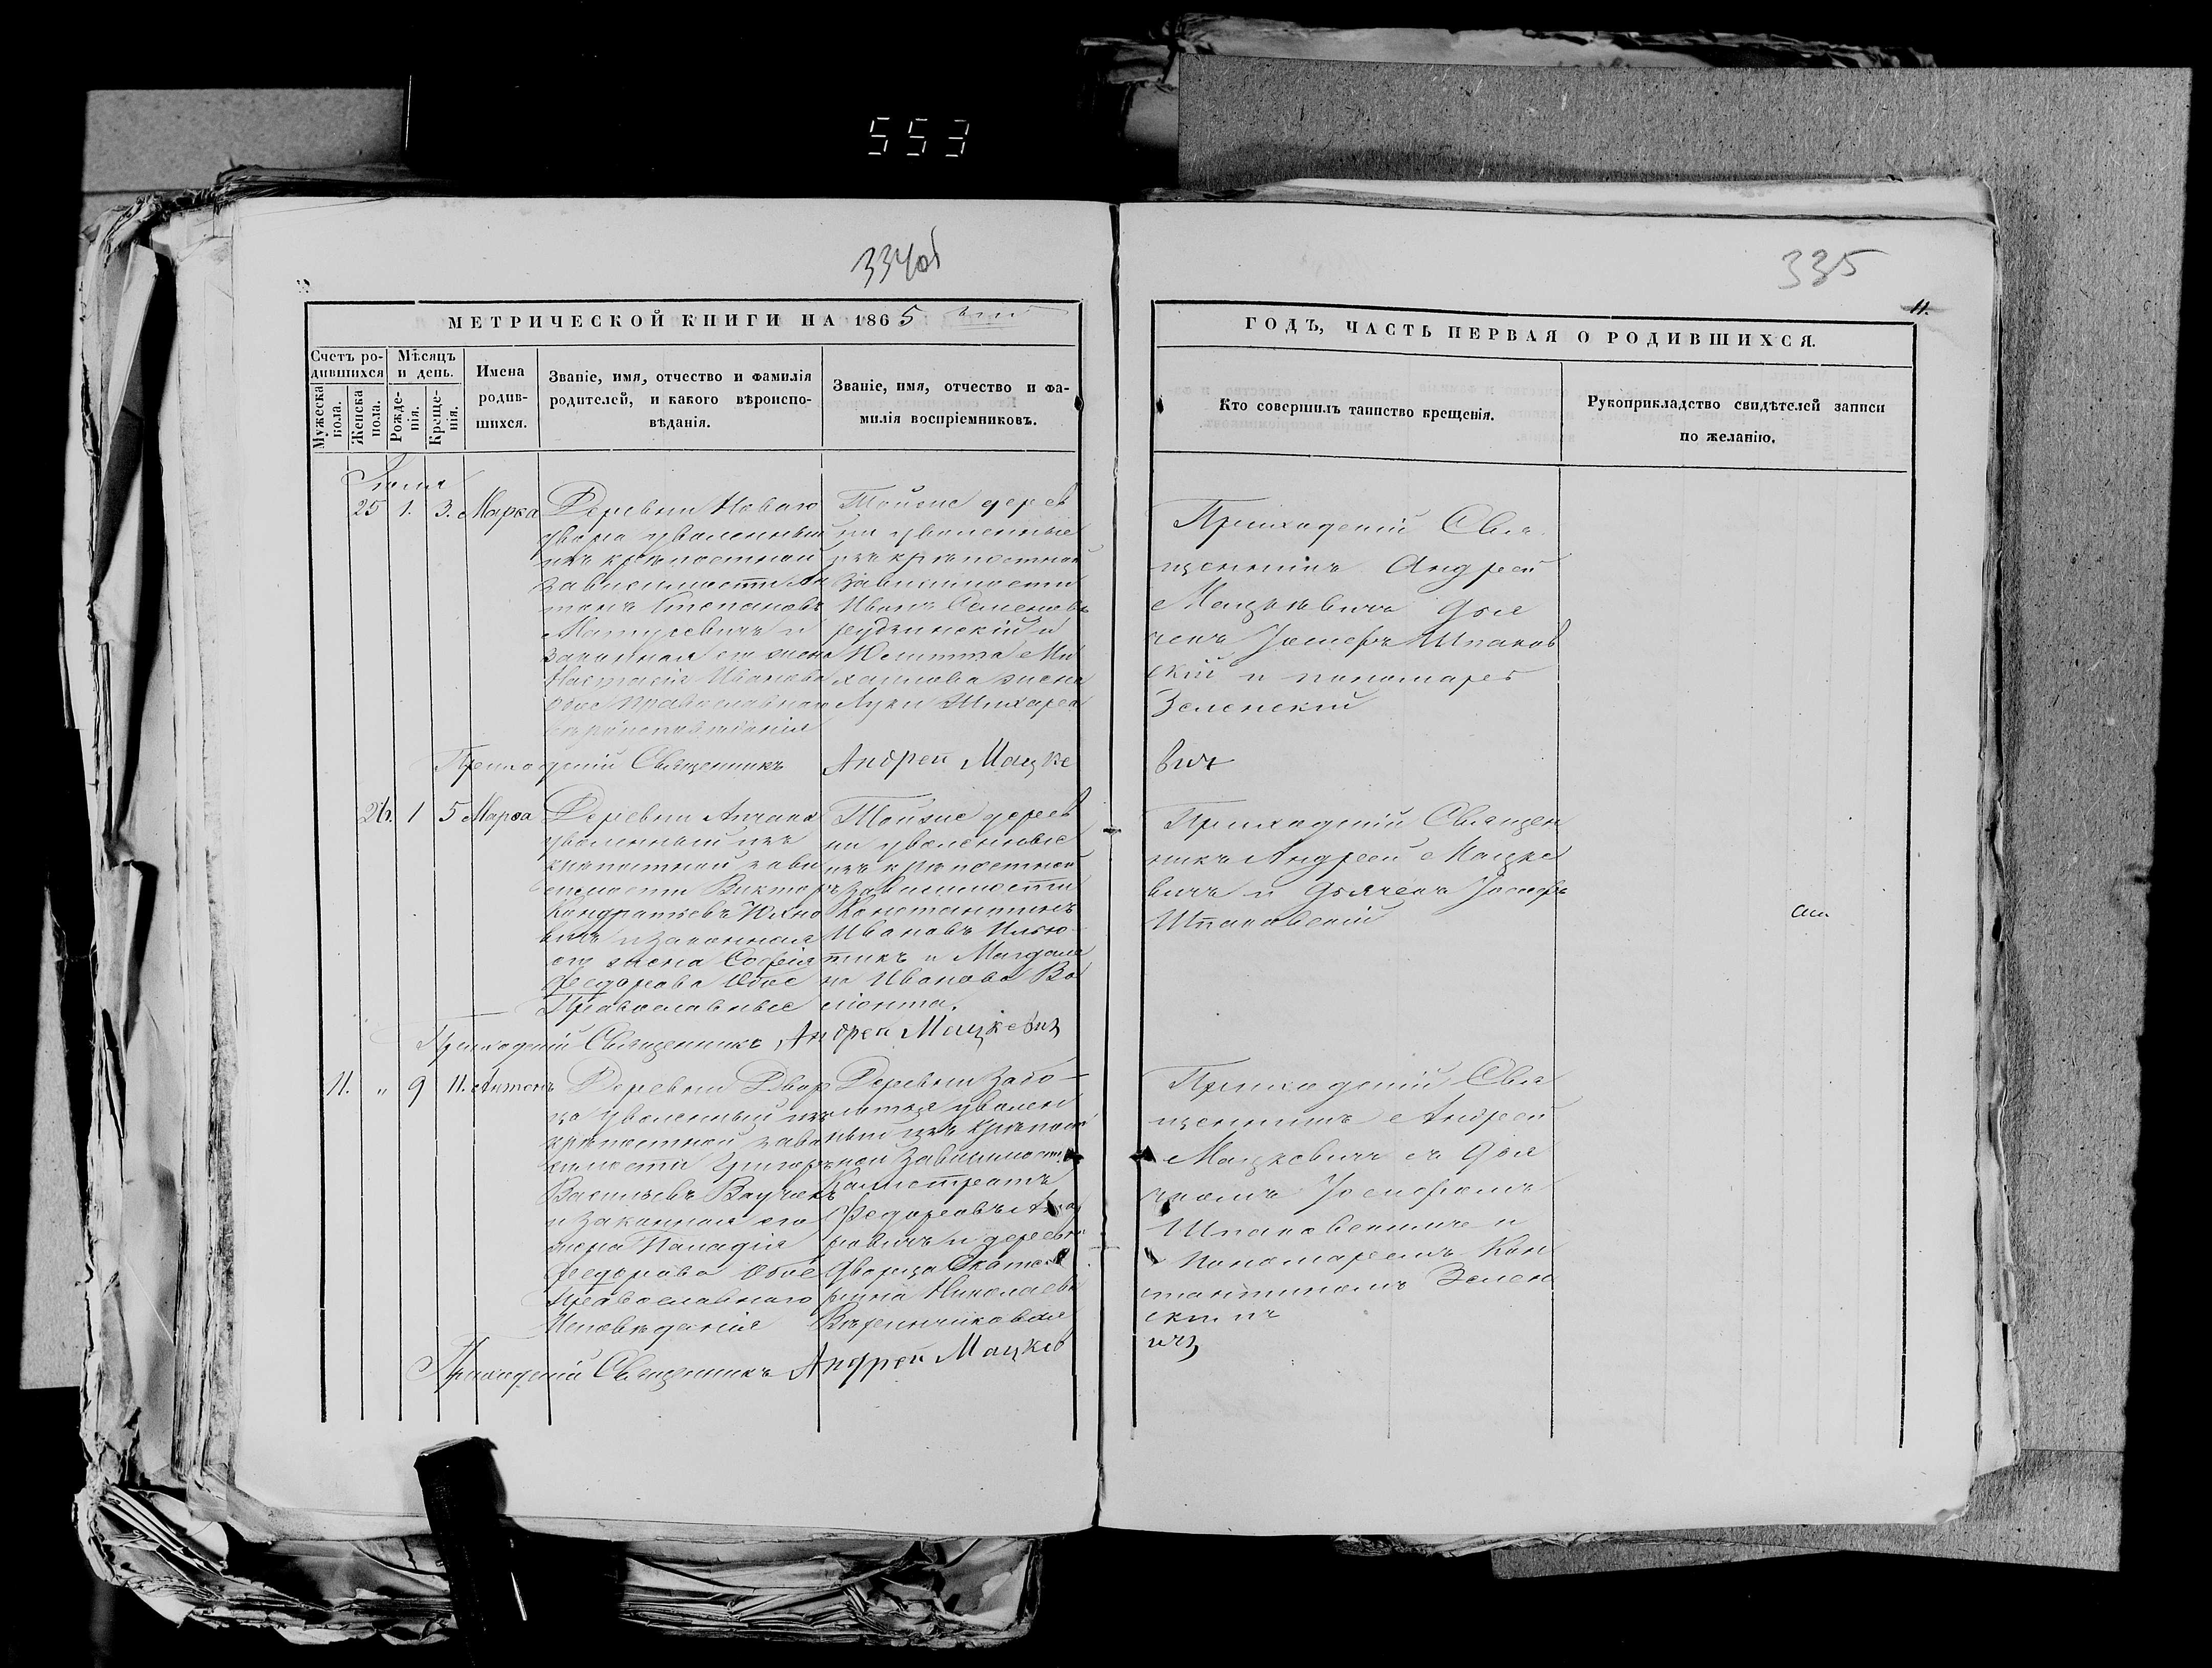 553
334об
335
МЕТРИЧЕСКОЙ КНИГИ НА 1865
11.
ГОДЪ, ЧАСТЬ ПЕРВАЯ О РОДИВШИХСЯ.
Счетъ ро-
дившихся
Мужеска
пола.
Женска
пола.
Мѣсяцъ
и день.
Рожде-
нія.
Креще-
нія.
Имена
родив-
шихся.
Званіе, имя, отчество и фамилія
родителей, и какого вѣроиспо-
вѣданія.
Званіе, имя, отчество и фа-
милія воспріемниковъ.
Кто совершилъ таинство крещенія.
Рукоприкладство свидѣтелей записи
по желанію.
Іюля
25 1. 3. Марѳа
Деревни Новаго
двора уволенный
изъ крѣпостной
зависимости Ан
тонъ Степановъ
и
законная его жена
Настасія Иванова
Обое Православнаго
вѣроисповѣданія
Тойже дерев
ни уволенные
изъ крѣпостной
зависимости
Иванъ Семеновъ
и
Ми
хайлова жена
Луки
Приходскій Свя
щенникъ Андрей
Мацкевичъ дья
чекъ Іосифъ Шпаков
скій и пономарь
Зеленскій
Приходскій Священникъ Андрей Мацке
вич
26. 1 5 Марѳа
Деревни
уволенный изъ
крѣпостной зави
симости Викторъ
Кондратьевъ Юхно
вичъ и законная
его жена Софія
Федорова Обое
Православные
Тойже дерев
ни уволенные
изъ крѣпостной
зависимости
Константинъ
Ивановъ
и Магдале
на Иванова
Приходскій Священ
никъ Андрей Мацке
вичъ и дьячекъ Іосифъ
Шпаковскій
Приходскій Священникъ Андрей Мацкевич
11. " 9 11. Антонъ
Деревни Двор
ца уволенный изъ
крѣпостной зави
симости Григорій
Васильевъ
и законная его
жена
Федорова Обое
Православнаго
Исповѣданія
Деревни
уволен
ный изъ крѣпост
ной зависимости
Калистратъ
Федоровъ
и деревни
Дворца Екате
рина Николаева
Приходскій Свя
щенникъ Андрей
Мацкевичъ съ дья
чкомъ Іосифомъ
Шпаковскимъ и
Пономаремъ Кон
стантиномъ Зелен
скимъ
Приходскій Священникъ Андрей Мацкев
ичъ